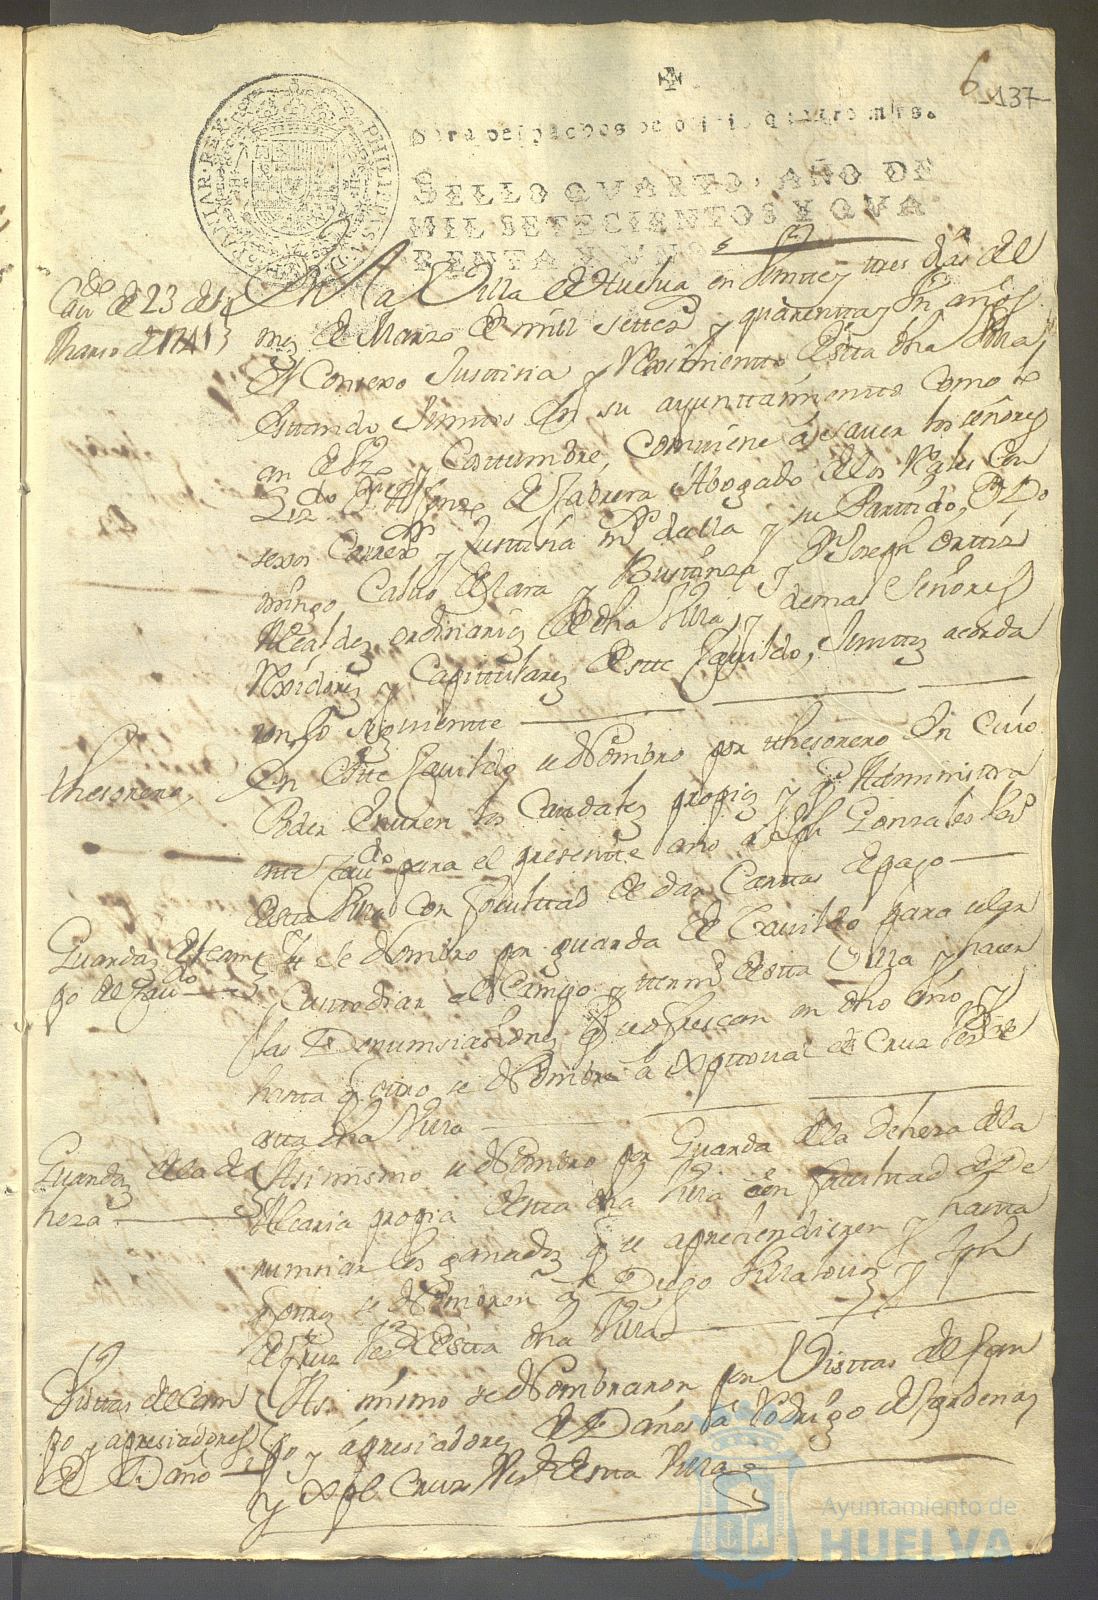 6 137
Para despachos de oficio quatro mrs.
SELLO QVARTO, AÑO DE
MIL SETECIENTOS Y QVA
RENTA Y VNO.
PHILIPPUS V D G HISPANIAR REX
Cavdo de 23 de
Marzo de 1741
En la Villa de Huelva en veinte y tres dias del
mes de Marzo de mill settezs y quarentta y un años
el Consexo Justtisia y Reximientto desta dha Villa
esttando Junttos en su ayunttamientto como lo
an de uso y Costtumbre, combiene a saver los señores
Lizdo Dn Alfonso de Cabrera Abogado de los Rales Con
sexos Correxr y Justtisia mor della y su Parttido, Dn Do
mingo Calbo de Lara y Busttansa y Dn Joseph Orttiz
Alcaldes ordinarios de dha Villa, y demas Señores
Rexidores y Capittulares deste Cavildo, Junttos acorda
ron lo siguientte
thesorero,
En este Cavildo se Nombro por thesorero en cuio
Poder entren los Caudales propios y qe Administra
este Cavdo para el presentte año a Gonzales
desta Villa con facultтad de dar Carttas de pago
Guardas del cam
po del Cavdo
Yt Se Nombro por guarda de Cavildo para selar
y Custtodiar el Campo y ttermo desta Villa y haser
las Denunsiasiones qe se ofrescan en dho año, y
hasta qe ottro se Nombre a Xpttoval de Cruz
desta dha Villa
Guardas de la de
hesa
Asimismo se Nombro por Guarda de la dehesa de la
Alcaria propia desta dha Villa con facultad de De
nunsiar los ganados qe se aprehendieren y hasta
qe ottros se Nombren a Diego Villalovos y Jph
de Cruz Vesos desta dha Villa
Visttas de Cam
po y apresiadores
de Daño
Asi mismo se Nombraron por Visttas de Cam
po y apresiadores de Daños a Rodrigo de Cardenas
y Xpl Cruz Vesos desta Villa
Ayuntamiento de
HUELVA